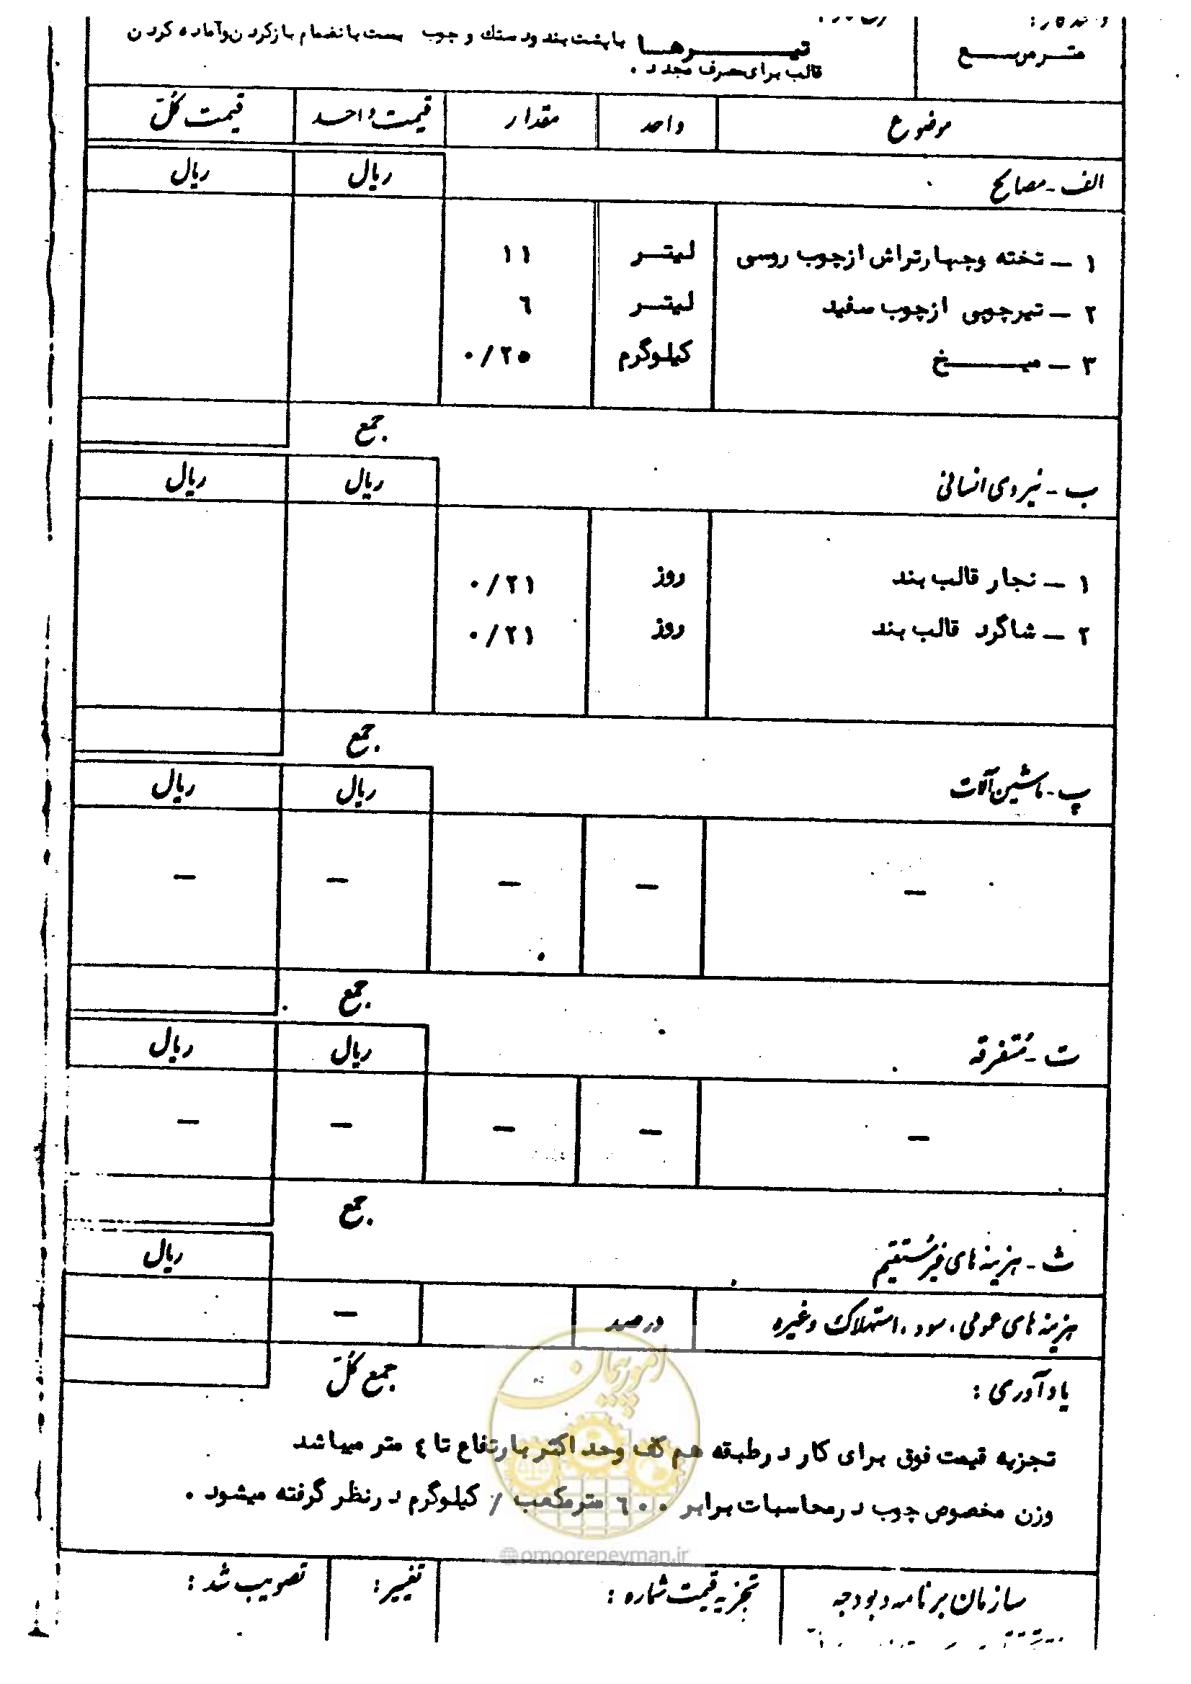 متر مربع
تیرها با پشت بند و دستك و چوب بست با نضمام بازكردن وآماده كردن
قالب برای مصرف مجدد .
موضوع واحد مقدار قیمت واحد قیمت کلّ
الف - مصالح ریال ریال
۱ ـ تخته وچهارتراش ازچوب روسی لیتر ۱۱
۲ ـ تیرچوبی ازچوب سفید لیتر ٦
۳ ـ میخ کیلوگرم ۰/۲۵
جمع
ب - نیروی انسانی ریال ریال
۱ ـ نجار قالب بند روز ۰/۲۱
۲ ـ شاگرد قالب بند روز ۰/۲۱
جمع
پ - ماشین آلات ریال ریال
— — — — —
جمع
ت - مُتفرقه ریال ریال
— — — — —
جمع
ث - هزینه های غیرمُستقیم ریال
هزینه های عمومی ، سود ، استهلاک وغیره درصد —
جمع کلّ
یادآوری :
تجزیه قیمت فوق برای کار درطبقه هم کف وحداکثر بارتفاع تا ٤ متر میباشد
وزن مخصوص چوب درمحاسبات برابر ٦۰۰ مترمکعب / کیلوگرم درنظر گرفته میشود .
امور پیمان
@omoorepeyman.ir
سازمان برنامه و بودجه تجزیه قیمت شماره : تغییر : تصویب شد :